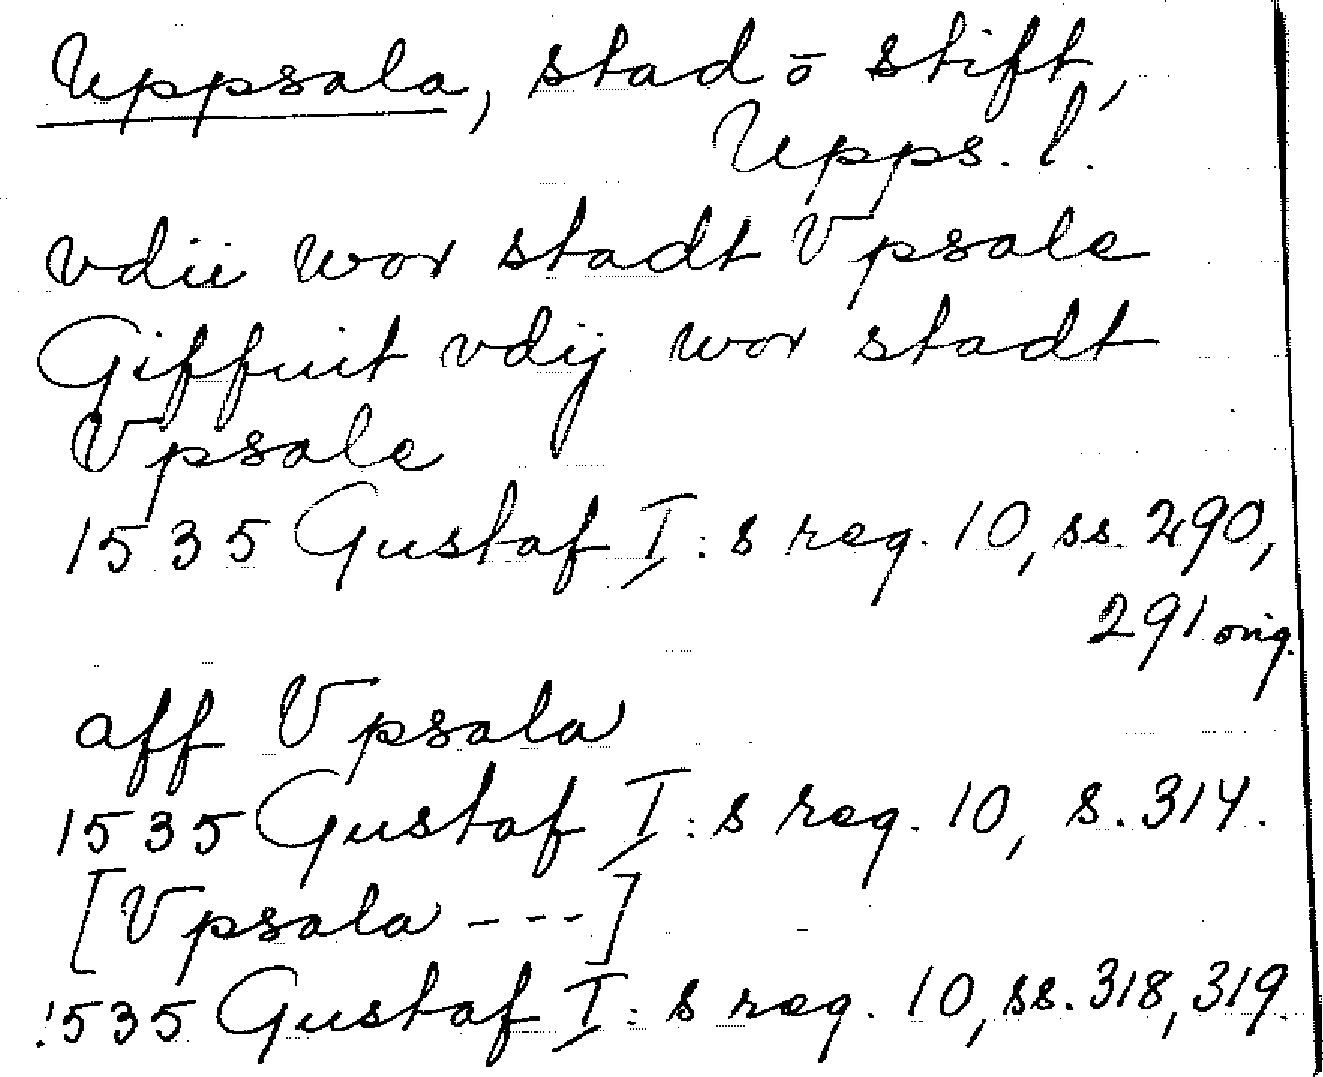 Uppsala, stad ō stift,
Upps. l.
vdii wor stadt Vpsale
Giffuit vdij wor stadt
Vpsale
1535 Gustaf I:s reg. 10, ss. 290,
291 orig.
aff Vpsala
1535 Gustaf I:s reg. 10, s. 314.
[Vpsala ---]
1535 Gustaf I:s reg. 10, ss. 318, 319.